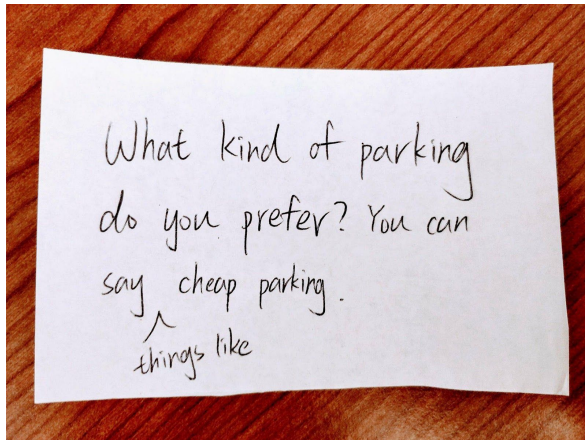 What kind of parking
do you prefer? You can
say cheap parking.
things like